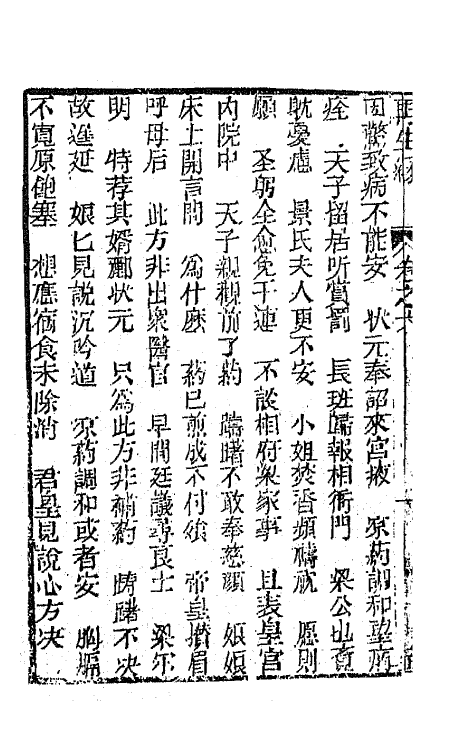 再生緣 卷之六
因驚致病不能安 狀元奉詔來宮掖 原药調和聖病
痊 天子留居听賞罰 長班歸報相衙門 梁公也竟
耽憂慮 景氏夫人更不安 小姐焚香頻禱祝 愿則
願 聖躬全愈免干連 不談相府梁家事 且表皇宫
内院中 天子親觀前了药 躊躇不敢奉慈顏 娘娘
床上開言問 為什麽 药已煎成不付飡 帝皇攢眉
呼母后 此方非出衆醫官 早間廷議尋良士 梁尔
明 特荐其婿酈狀元 只為此方非補药 躊躇不决
故遲延 娘匕見說沉吟道 原药調和或者安 胸膈
不寬原飽塞 想應宿食未除消 君皇見說心方决